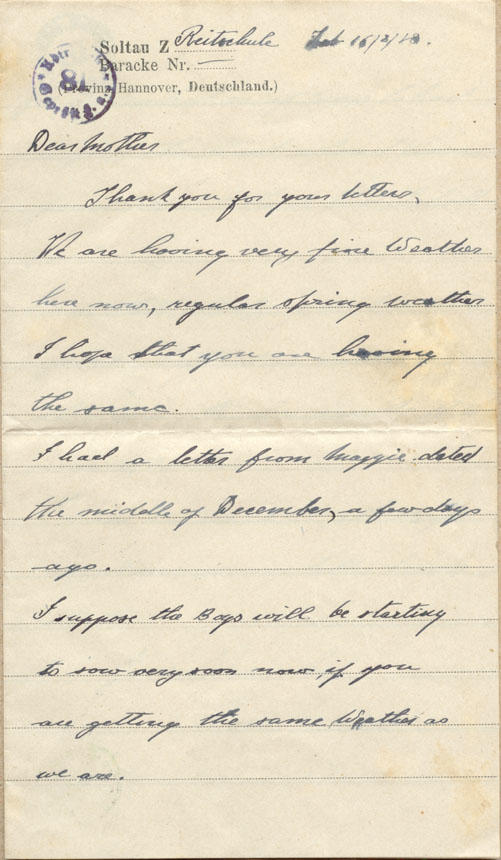 Soltau Z Reitschule Feb 16/2/18.
Baracke Nr. —
(Provinz Hannover, Deutschland.)
81
Dear Mother
Thank you for your letters,
We are having very fine Weather
here now, regular spring weather
I hope that you are having
the same.
I had a letter from Maggie dated
the middle of December, a few days
ago.
I suppose the Boys will be starting
to sow very soon now if you
are getting the same Weather as
we are.